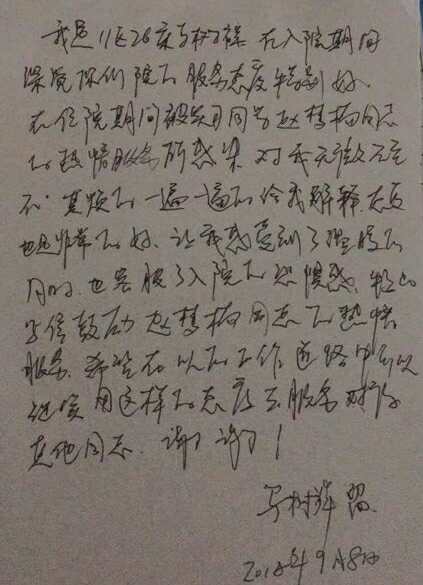 我是11区26床马树祥 在入院期间
深觉你们院的服务态度特别好.
在住院期间被 赵梦梅同志
的热情服务所感染 对我无微不至
不厌其烦的一遍一遍的给我解释 态度
也非常的好. 让我感受到了
也 了入院的恐惧感. 特此
写信鼓励赵梦梅同志的热情
服务. 希望在以后的工作道路中可以
继续用这样的态度去服务
其他同志. 谢谢 !
马树祥 留.
2018年9月8日